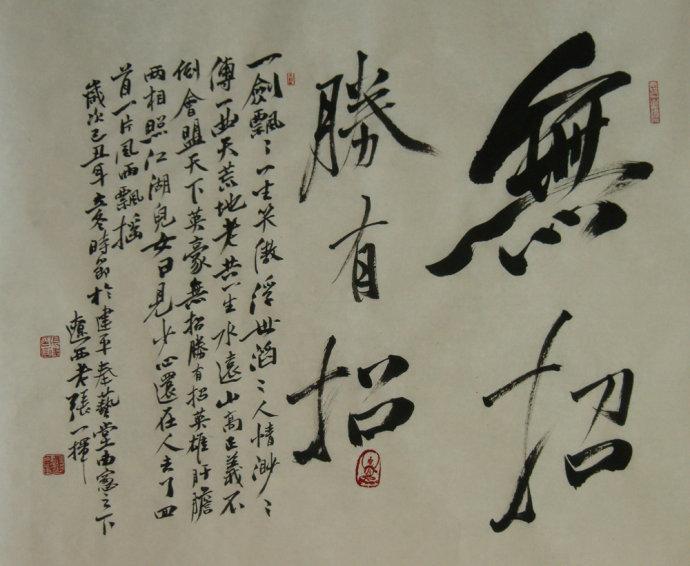 無招
勝有招
一劍飄〻一生笑傲浮世滔〻人情渺〻
傳一曲天荒地老共一生水遠山高正義不
倒會盟天下英豪無招勝有招英雄肝膽
兩相照江湖兒女日見少心還在人去了回
首一片風雨飄搖
歲次己丑年立冬時節於建平奉藝堂南窗之下
遼西老張一揮